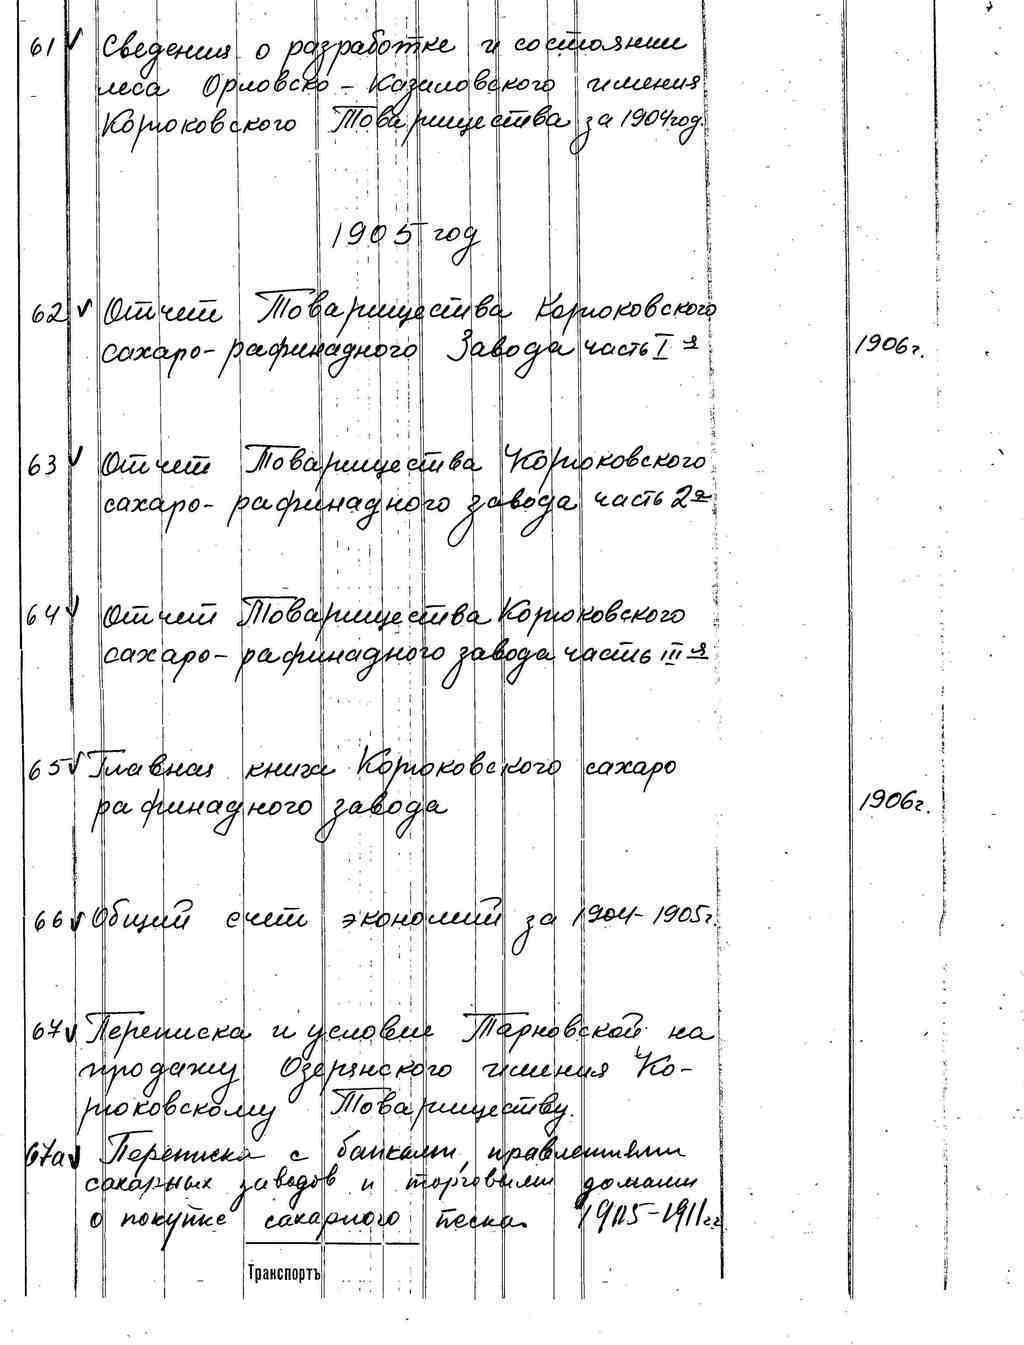 61 ✓ Сведения о разработке и состоянии
леса Орловско - Казиловского имения
Корюковского Товарищества за 1904 год.
1905 год
62 ✓ Отчет Товарищества Корюковского
сахаро-рафинадного Завода часть I я 1906 г.
63 ✓ Отчет Товарищества Корюковского
сахаро-рафинадного завода часть 2я
64 ✓ Отчет Товарищества Корюковского
сахаро-рафинадного завода часть III я
65 ✓ Главная книга Корюковского сахаро
рафинадного завода 1906 г.
66 ✓ Общий счет экономий за 1904-1905 г.
67 ✓ Переписка и условие Тарновской на
продажу Озерянского имения Ко-
рюковскому Товариществу.
67а ✓ Переписка с банками, правлениями
сахарных заводов и торговыми домами
о покупке сахарного песка 1905-1911 гг
Транспортъ